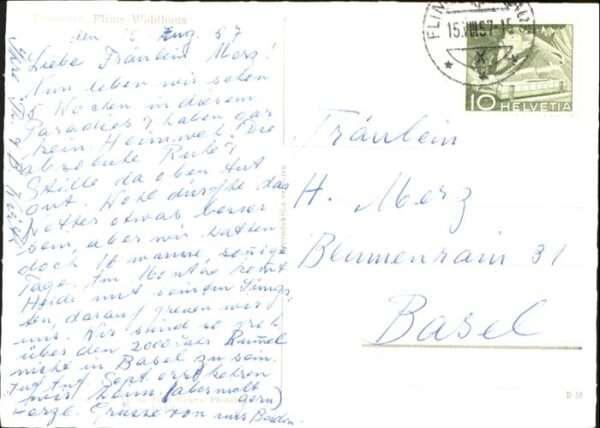 Flims-Waldhaus
den 15. Aug. 57
Liebe Fräulein Merz!
Nun leben wir schon
5 Wochen in diesem
Paradies & haben gar
kein Heimweh! Die
absolute Ruhe &
Stille da oben tut
gut. Wohl dürfte das
Wetter etwas besser
sein, aber wir hatten
doch 16 warme, sonnige
Tage. Am Montag komt
Heidi mit seinem
darauf freuen wir
uns. Wir sind so froh
über den 2000 Jahr Rummel
nicht in Basel zu sein.
Auf Anf. Sept. erst kehren
wir heim (aber mit
gern)
Herzl. Grüsse von uns Beiden.
FLIMS
15.VIII.57-15
X
10 HELVETIA
Fräulein
H. Merz
Blumenrain 31
Basel